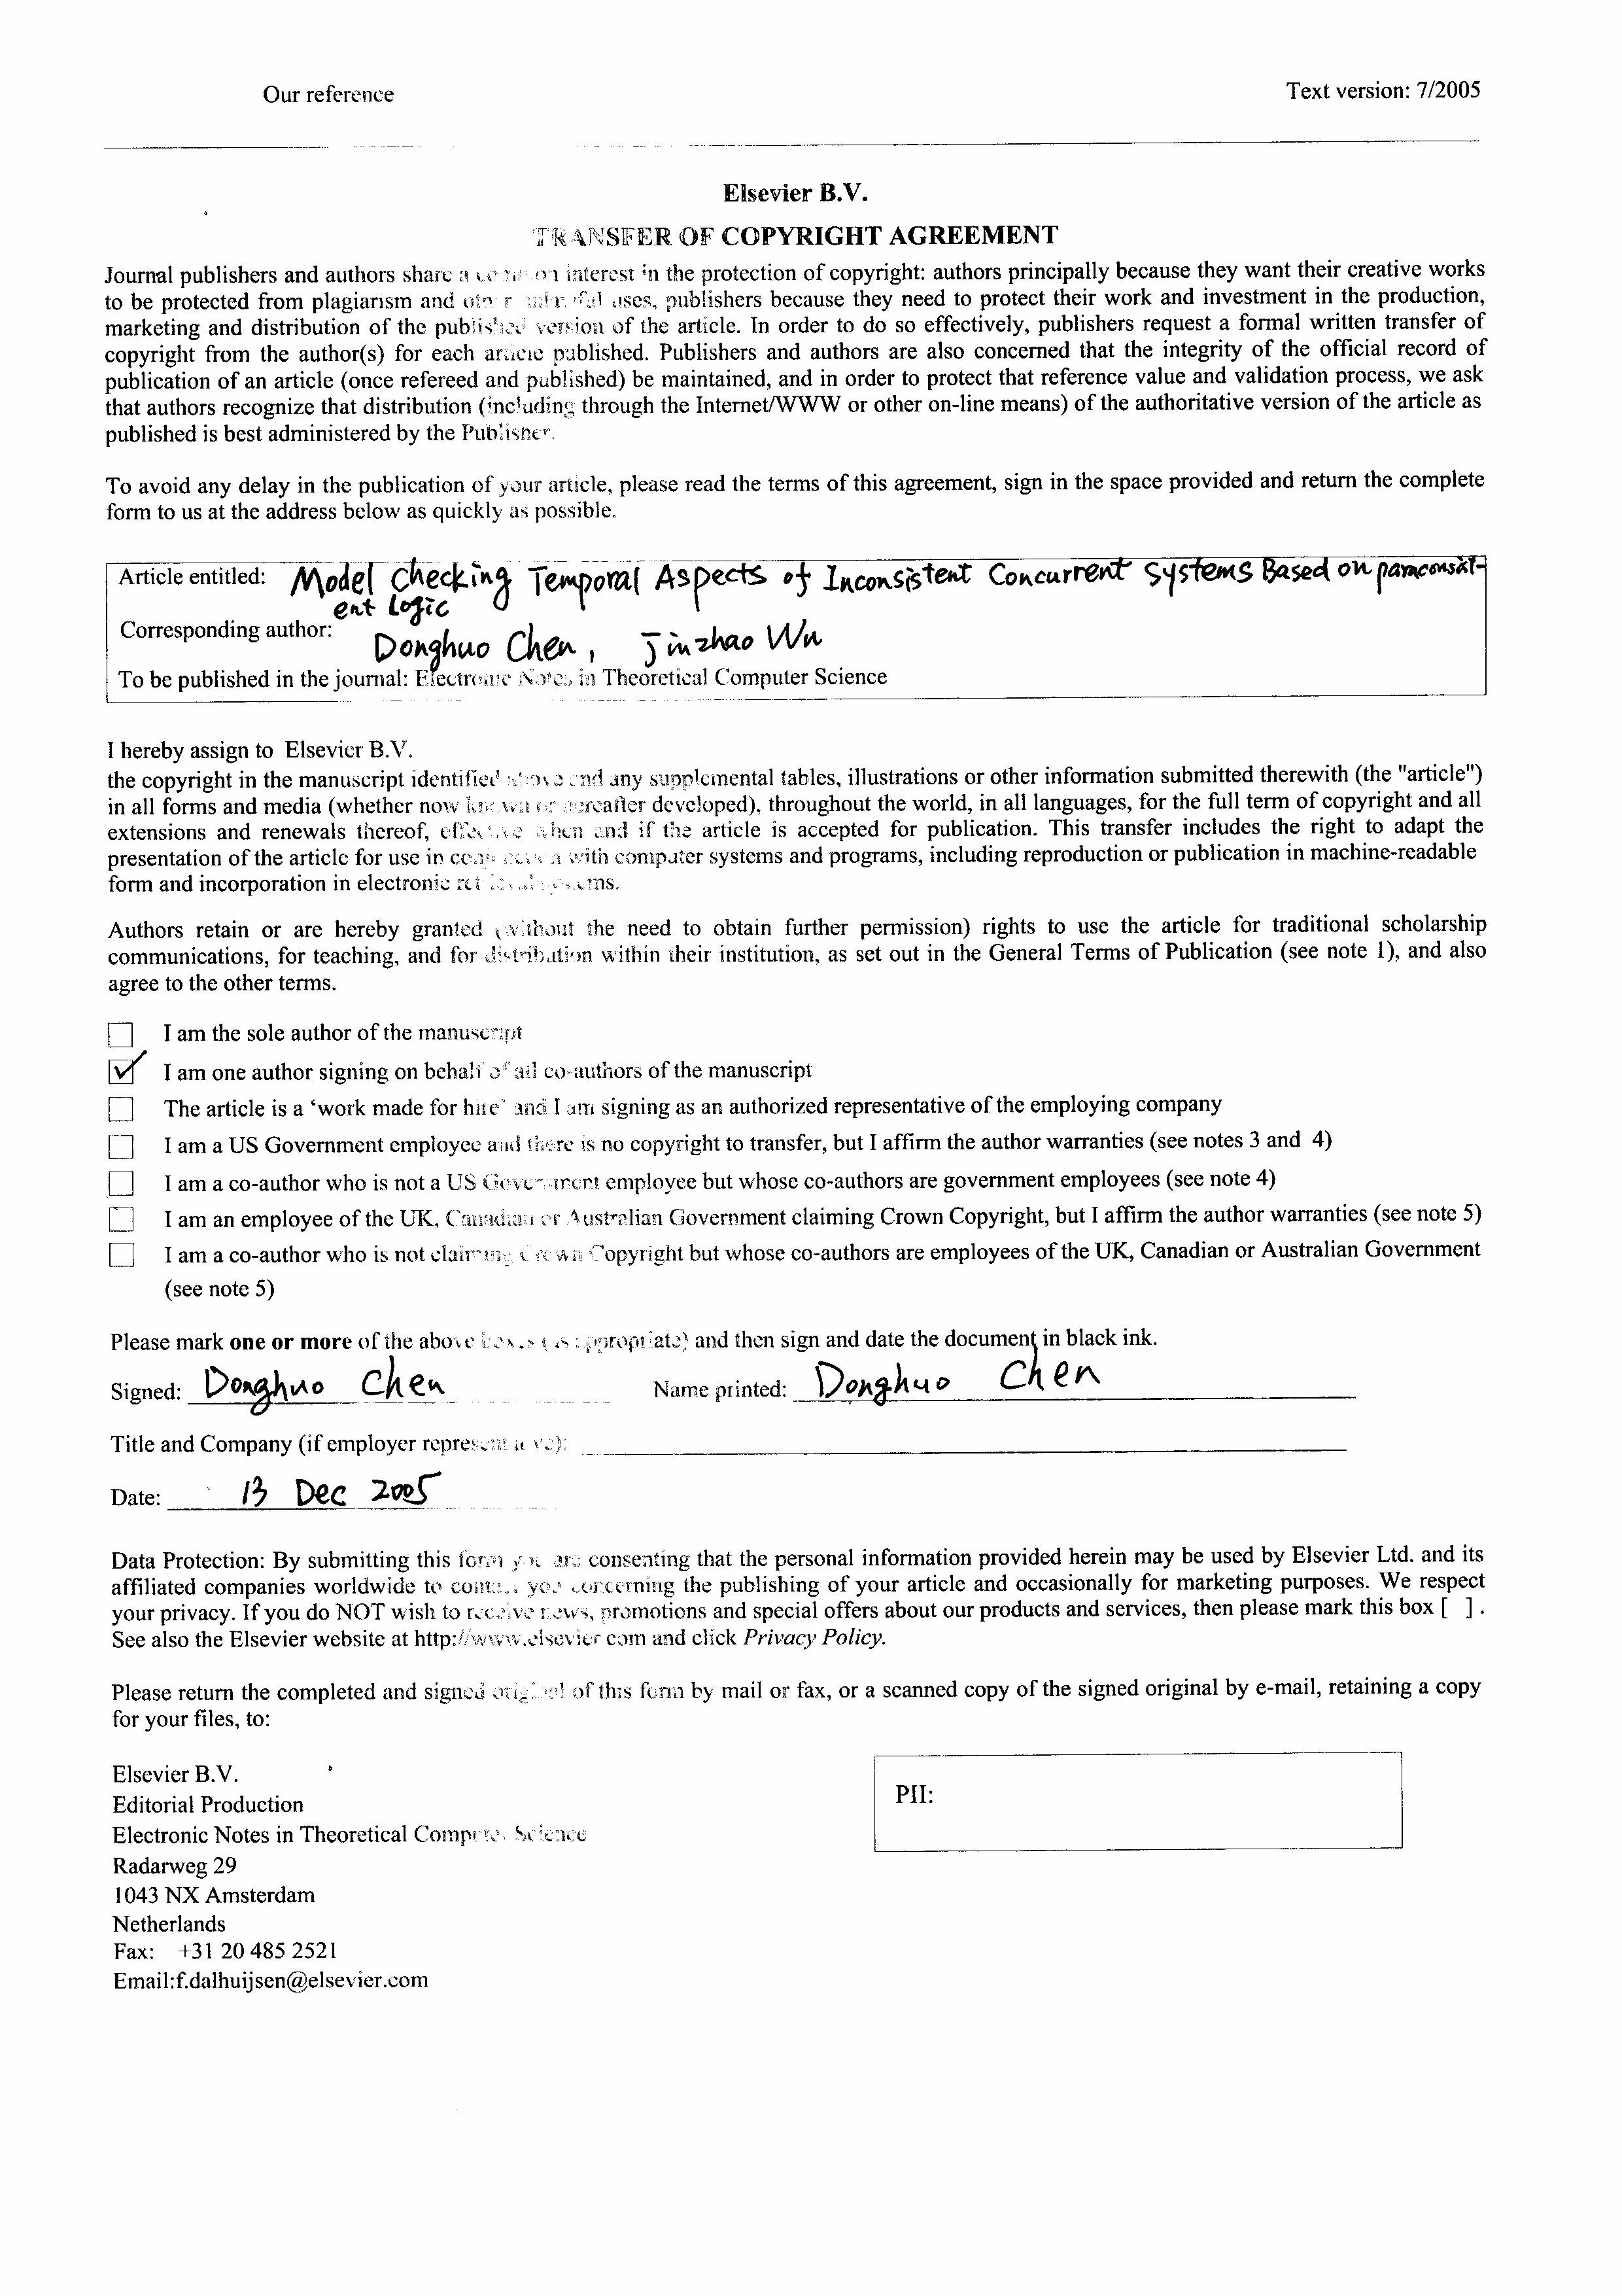 Our reference
Text version: 7/2005
Elsevier B.V.
TRANSFER OF COPYRIGHT AGREEMENT
Journal publishers and authors share a common interest in the protection of copyright: authors principally because they want their creative works
to be protected from plagiarism and other unlawful uses, publishers because they need to protect their work and investment in the production,
marketing and distribution of the published version of the article. In order to do so effectively, publishers request a formal written transfer of
copyright from the author(s) for each article published. Publishers and authors are also concerned that the integrity of the official record of
publication of an article (once refereed and published) be maintained, and in order to protect that reference value and validation process, we ask
that authors recognize that distribution (including through the Internet/WWW or other on-line means) of the authoritative version of the article as
published is best administered by the Publisher.
To avoid any delay in the publication of your article, please read the terms of this agreement, sign in the space provided and return the complete
form to us at the address below as quickly as possible.
Article entitled: Model Checking Temporal Aspects of Inconsistent Concurrent Systems Based on paraconsist-
ent Logic
Corresponding author: Donghuo Chen, Jinzhao Wu
To be published in the journal: Electronic Notes in Theoretical Computer Science
I hereby assign to Elsevier B.V.
the copyright in the manuscript identified above and any supplemental tables, illustrations or other information submitted therewith (the "article")
in all forms and media (whether now known or hereafter developed), throughout the world, in all languages, for the full term of copyright and all
extensions and renewals thereof, effective when and if the article is accepted for publication. This transfer includes the right to adapt the
presentation of the article for use in conjunction with computer systems and programs, including reproduction or publication in machine-readable
form and incorporation in electronic retrieval systems.
Authors retain or are hereby granted (without the need to obtain further permission) rights to use the article for traditional scholarship
communications, for teaching, and for distribution within their institution, as set out in the General Terms of Publication (see note 1), and also
agree to the other terms.
I am the sole author of the manuscript
I am one author signing on behalf of all co-authors of the manuscript
The article is a ‘work made for hire’ and I am signing as an authorized representative of the employing company
I am a US Government employee and there is no copyright to transfer, but I affirm the author warranties (see notes 3 and 4)
I am a co-author who is not a US Government employee but whose co-authors are government employees (see note 4)
I am an employee of the UK, Canadian or Australian Government claiming Crown Copyright, but I affirm the author warranties (see note 5)
I am a co-author who is not claiming Crown Copyright but whose co-authors are employees of the UK, Canadian or Australian Government
(see note 5)
Please mark one or more of the above boxes (as appropriate) and then sign and date the document in black ink.
Signed: Donghuo Chen Name printed: Donghuo Chen
Title and Company (if employer representative):
Date: 13 Dec 2005
Data Protection: By submitting this form you are consenting that the personal information provided herein may be used by Elsevier Ltd. and its
affiliated companies worldwide to contact you concerning the publishing of your article and occasionally for marketing purposes. We respect
your privacy. If you do NOT wish to receive news, promotions and special offers about our products and services, then please mark this box [ ] .
See also the Elsevier website at http://www.elsevier.com and click Privacy Policy.
Please return the completed and signed original of this form by mail or fax, or a scanned copy of the signed original by e-mail, retaining a copy
for your files, to:
Elsevier B.V.
Editorial Production
PII:
Electronic Notes in Theoretical Computer Science
Radarweg 29
1043 NX Amsterdam
Netherlands
Fax: +31 20 485 2521
Email:f.dalhuijsen@elsevier.com